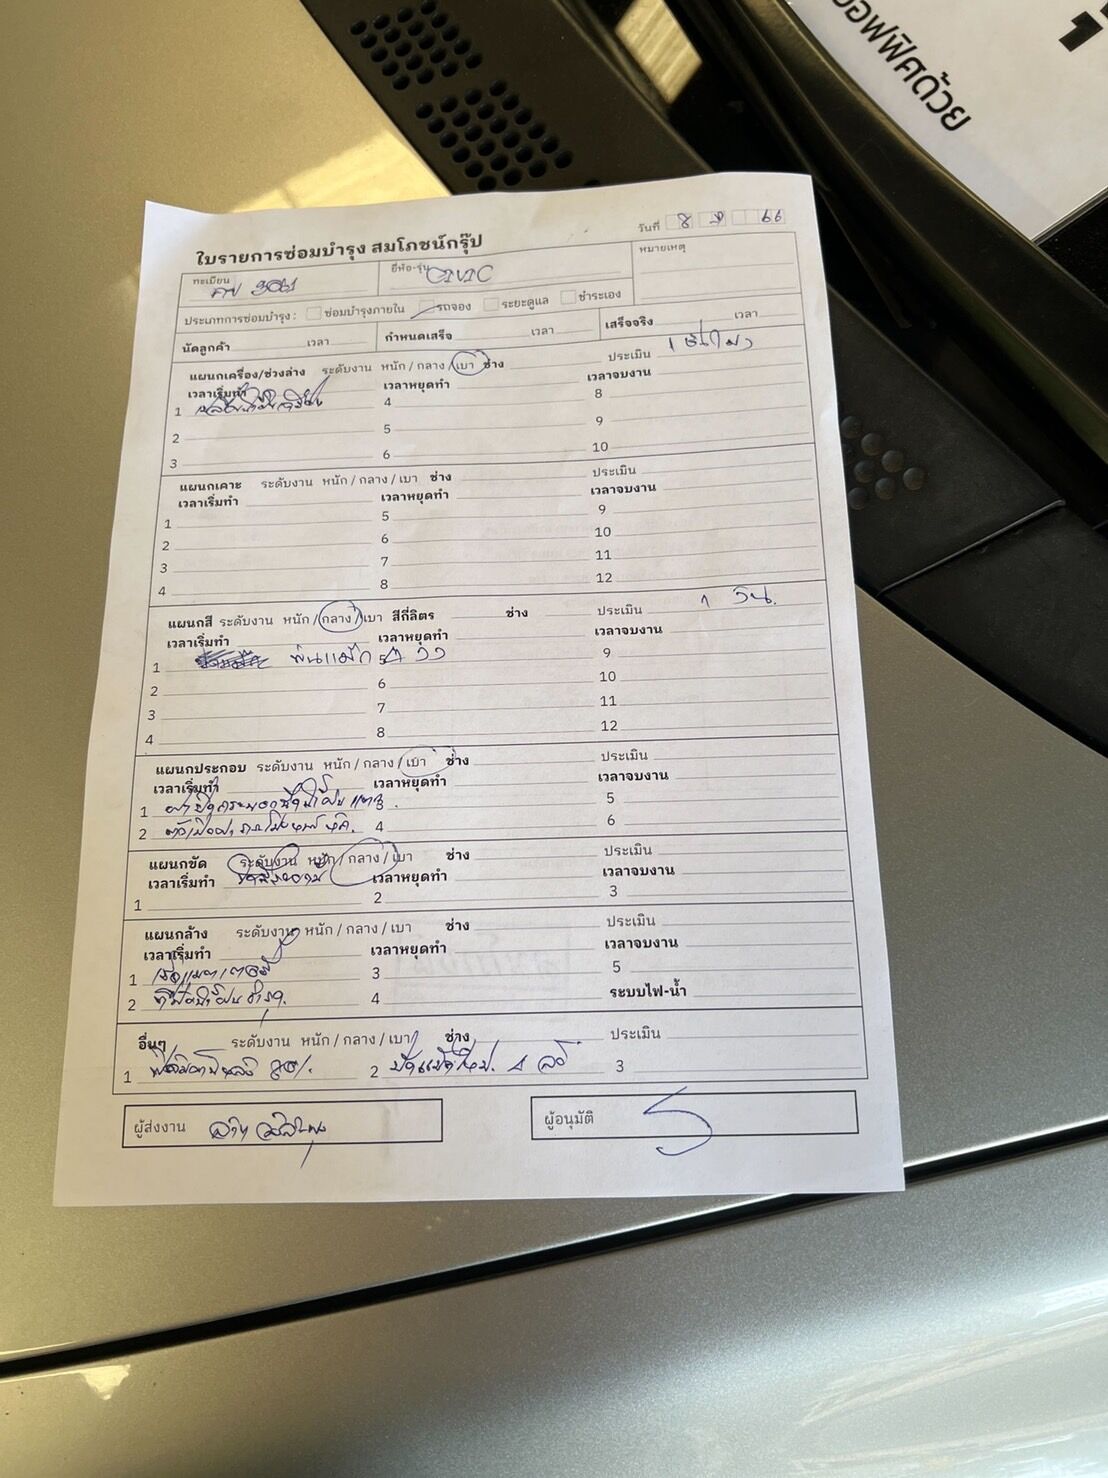 อฟฟิศด้วย
ใบรายการซ่อมบำรุง สมโภชน์กรุ๊ป
วันที่ 8 66
ทะเบียน 3061 ยี่ห้อ-รุ่น CIVIC หมายเหตุ
ประเภทการซ่อมบำรุง : ซ่อมบำรุงภายใน รถจอง ระยะดูแล ชำระเอง
นัดลูกค้า เวลา กำหนดเสร็จ เวลา เสร็จจริง เวลา
แผนกเครื่อง/ช่วงล่าง ระดับงาน หนัก / กลาง / เบา ช่าง ประเมิน 1 ชั่วโมง
เวลาเริ่มทำ เวลาหยุดทำ เวลาจบงาน
1 4 8
2 5 9
3 6 10
แผนกเคาะ ระดับงาน หนัก / กลาง / เบา ช่าง ประเมิน
เวลาเริ่มทำ เวลาหยุดทำ เวลาจบงาน
1 5 9
2 6 10
3 7 11
4 8 12
แผนกสี ระดับงาน หนัก / กลาง / เบา สีกี่ลิตร ช่าง ประเมิน 1 วัน.
เวลาเริ่มทำ เวลาหยุดทำ เวลาจบงาน
1 พ่นแม็ก 5 9
2 6 10
3 7 11
4 8 12
แผนกประกอบ ระดับงาน หนัก / กลาง / เบา ช่าง ประเมิน
เวลาเริ่มทำ เวลาหยุดทำ เวลาจบงาน
1 3 5
2 4 6
แผนกขัด ระดับงาน หนัก / กลาง / เบา ช่าง ประเมิน
เวลาเริ่มทำ เวลาหยุดทำ เวลาจบงาน
1 2 3
แผนกล้าง ระดับงาน หนัก / กลาง / เบา ช่าง ประเมิน
เวลาเริ่มทำ เวลาหยุดทำ เวลาจบงาน
1 3 5
2 4 ระบบไฟ-น้ำ
อื่นๆ ระดับงาน หนัก / กลาง / เบา ช่าง ประเมิน
1 2 4 3
ผู้ส่งงาน ผู้อนุมัติ